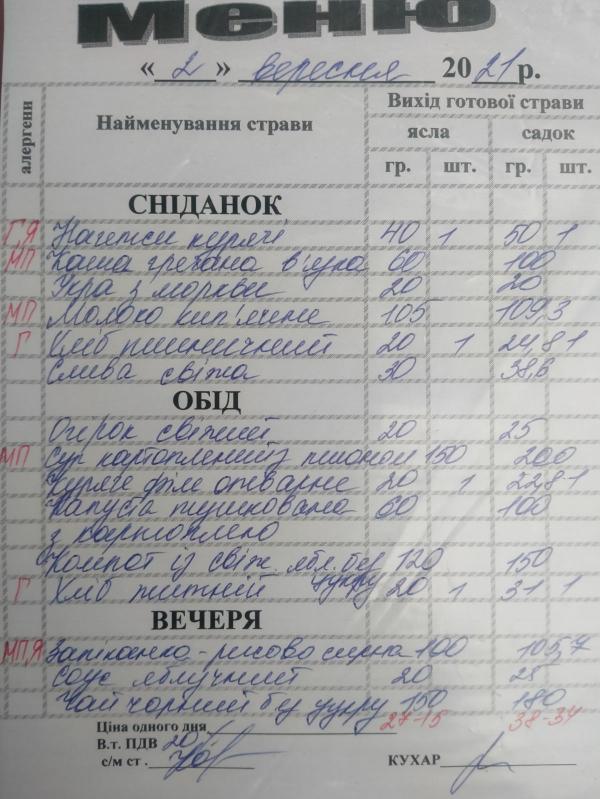 Меню
« 2 » вересня 2021 р.
алергени Найменування страви Вихід готової страви
ясла садок
гр. шт. гр. шт.
СНІДАНОК
Г,Я Нагетси курячі 40 1 50 1
МП Каша гречана в'язка 60 100
Ікра з моркви 20 20
МП Молоко кип'ячене 105 109,3
Г Хліб пшеничний 20 1 24,8 1
Слива свіжа 30 38,6
ОБІД
Огірок свіжий 20 25
МП Суп картопляний з пшоном 150 200
Куряче філе отварне 20 1 22,8 1
Капуста тушкована 60 100
з картоплею
Компот із свіж. ябл. без цукру 120 150
Г Хліб житній 20 1 31 1
ВЕЧЕРЯ
МП,Я Запіканка-рисово сирна 100 105,7
Соус яблучний 20 25
Чай чорний без цукру 150 180
Ціна одного дня 27-15 38-34
В.т. ПДВ 20
с/м ст. КУХАР